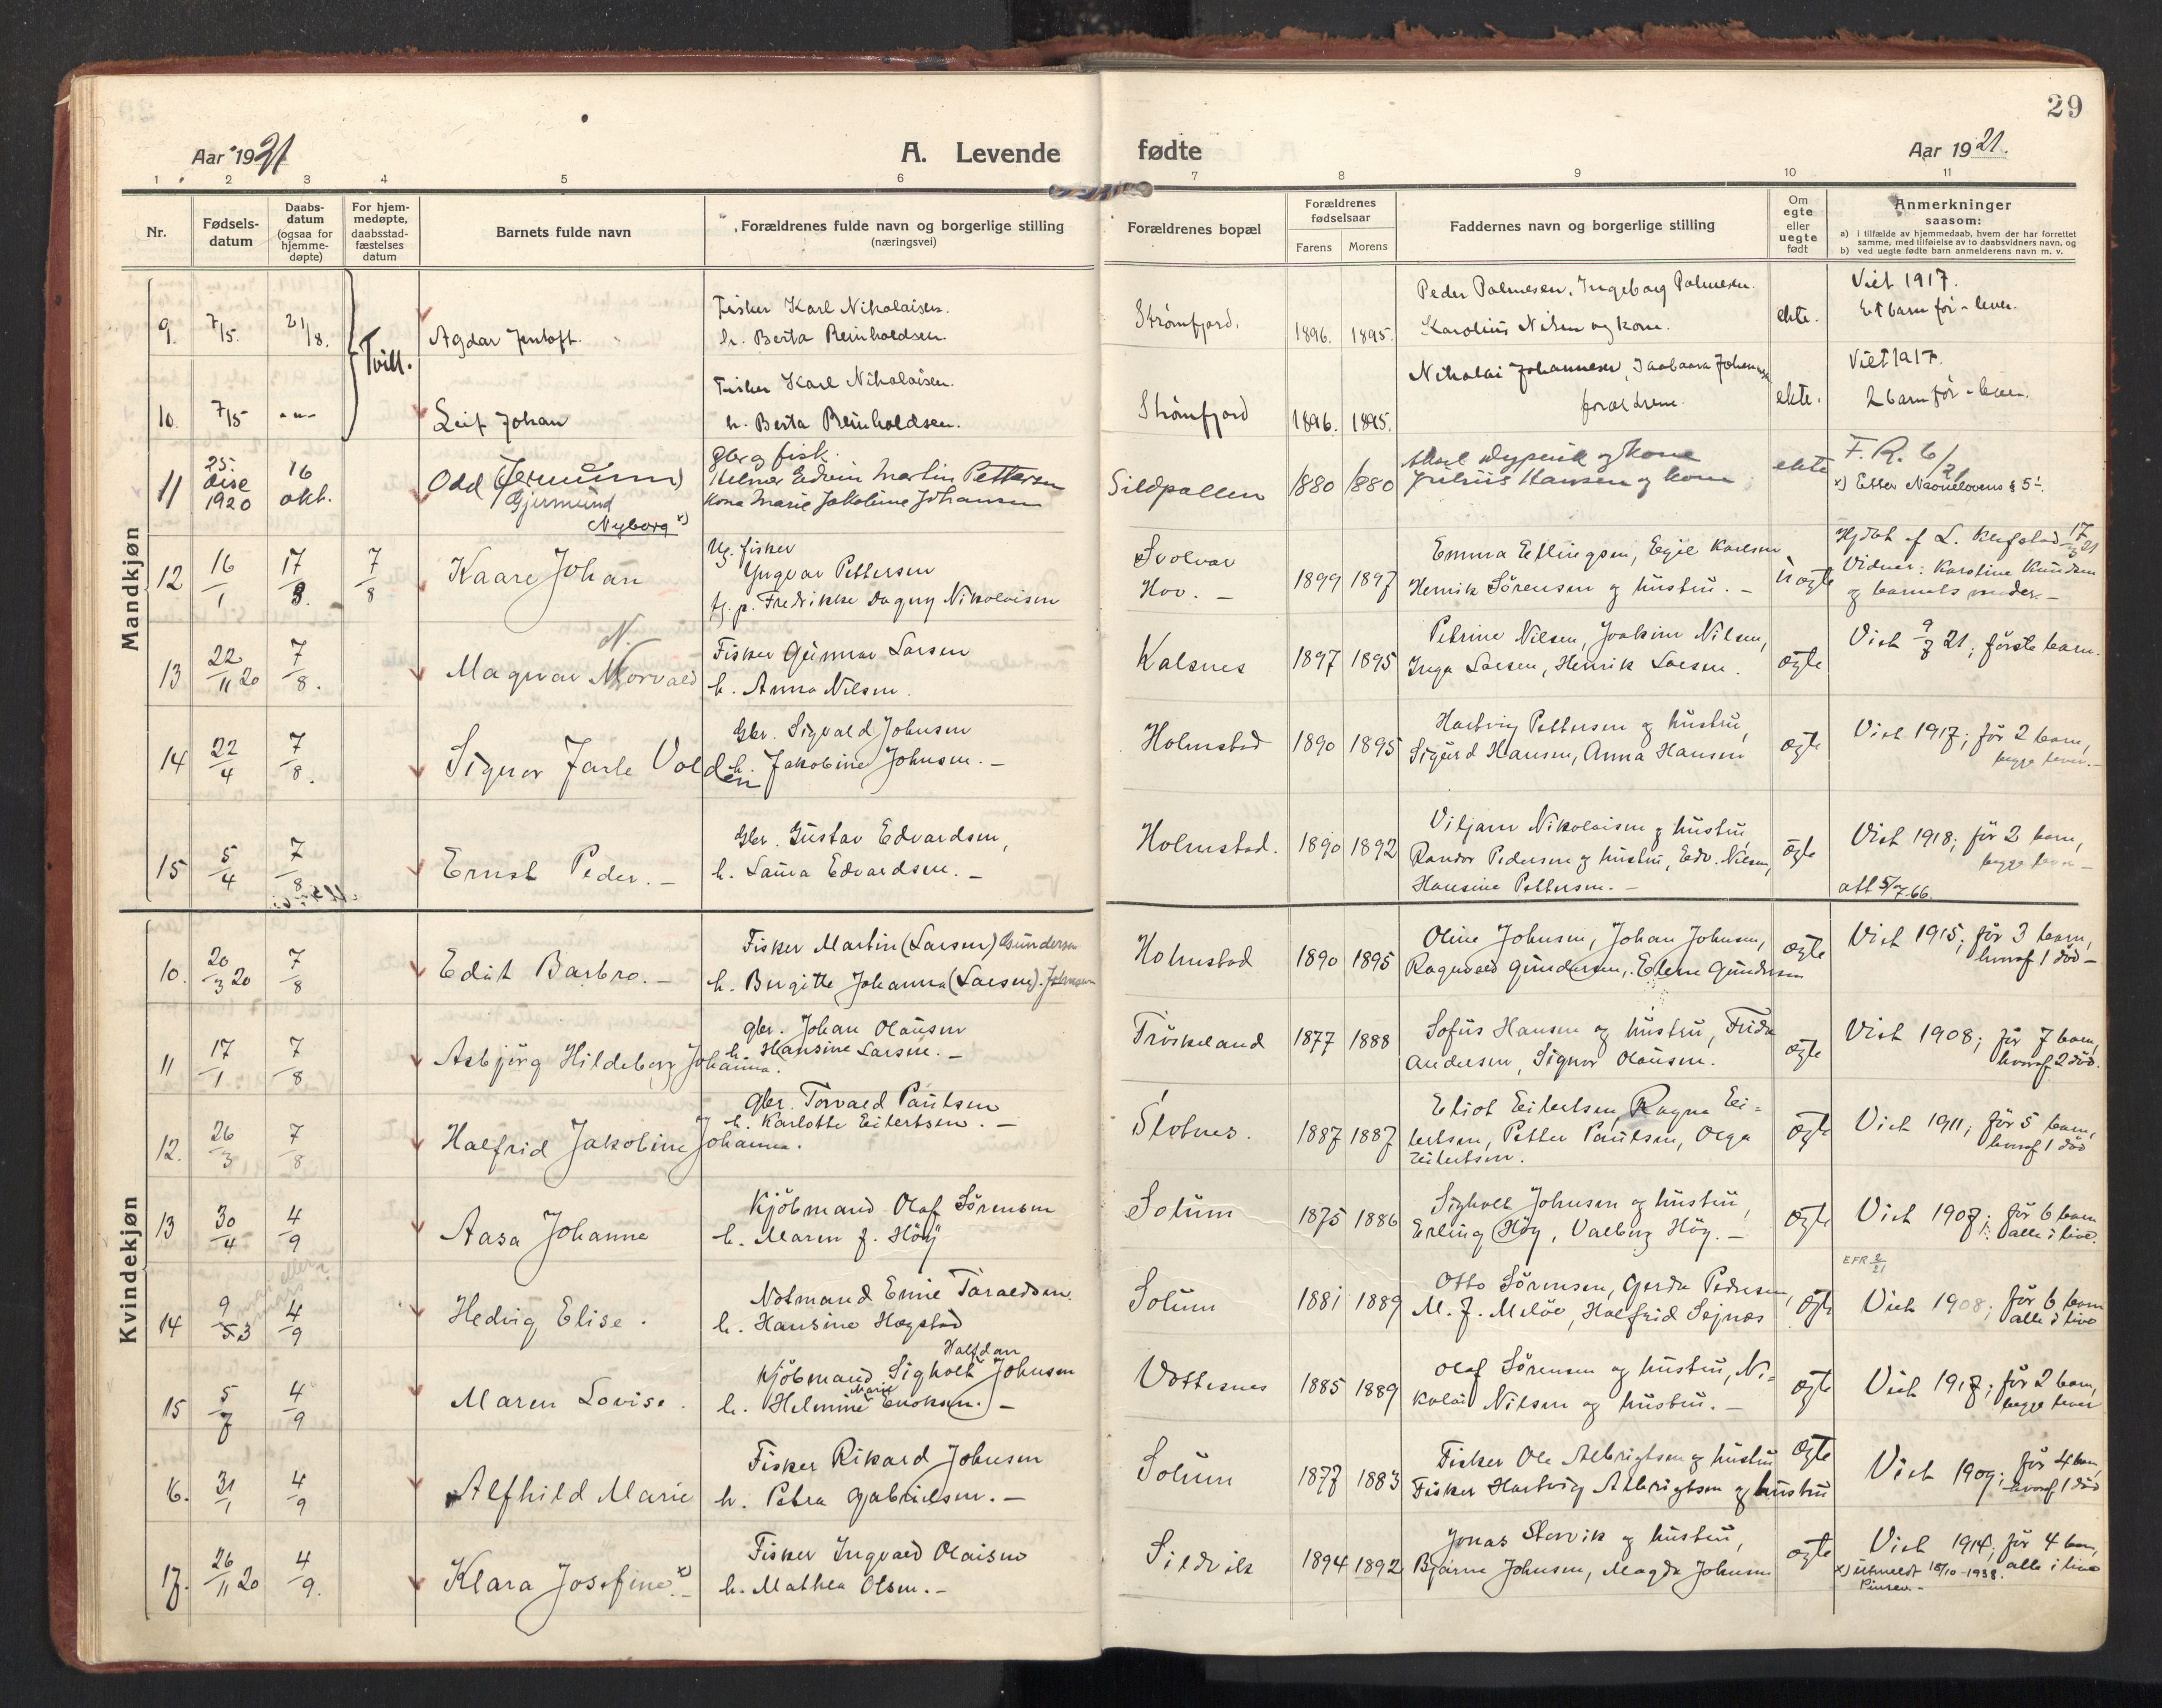 29
Aar 1921
A. Levende fødte
Aar 1921.
1 2 3 4 5 6 7 8 9 10 11
Nr.
Fødsels-
datum
Daabs-
datum
(ogsaa for
hjemme-
døpte)
For hjem-
medøpte,
daabsstad-
fæstelses
datum
Barnets fulde navn
Forældrenes fulde navn og borgerlige stilling
(næringsvei)
Forældrenes bopæl
Forældrenes
fødselsaar
Farens Morens
Faddernes navn og borgerlige stilling
Om
egte
eller
uegte
født
Anmerkninger
saasom:
a) i tilfælde av hjemmedaab, hvem der har forrettet
samme, med tilføielse av to daabsvidners navn, og
b) ved uegte fødte barn anmelderens navn m. v.
Mandkjøn
9. 7/5. 21/8. Tvill. Agdar Jentoft.
Fisker Karl Nikolaisen.
h. Berta Reinholdsen.
Strømfjord. 1896. 1895.
Peder Palmesen, Ingeborg Palmesen.
Karolius Nilsen og kone.
ekte.
Viet 1917.
Et barn før - lever.
10. 7/5 -"- Leif Johan
Fisker Karl Nikolaisen.
h. Berta Reinholdsen.
Strømfjord 1896. 1895.
Nikolai Johannesen,
forældrene.
ekte.
Viet 1917.
2 barn før - lever.
11 25. dise 1920 16 okt. Odd (Jermunn)
Gjermund
Nyborg x)
gbr og fisk.
Helmer Edvin Martin Pettersen
Kona Marie Jakobine Johansen
Sildpollen 1880 1880
og kone
Julius Hansen og kone
ekte
F. R. 6/21
x) Etter Navnelovens § 5
12 16/1 17/3. 7/8 Kaare Johan
Ug. fisker
Yngvar Pettersen
og p. Fredrikke Dagny Nikolaisen
Svolvær
Hov. - 1899 1897
Emma Ellingsen, Egil Karlsen,
Henrik Sørensen og hustru. -
uegte
Hjdøt af L. Klefstad 17/3 21
Vidner: Karoline Knudsen
og barnets moder. -
13 22/11 20 7/8. Magnar Norvald
N.
Fisker Gunnar Larsen
h. Anna Nilsen.
Kalsnes 1897 1895
Petrine Nilsen, Joakim Nilsen,
Inga Larsen, Henrik Larsen.
egte
Viet 9/7 21; første barn.
14 22/4 7/8. Signor Jarle Volden
Gbr. Sigvald Johnsen
h. Jakobine Johnsen. -
Holmstad 1890 1895
Hartvig Pettersen og hustru,
Sigurd Hansen, Anna Hansen
egte
Viet 1917; før 2 barn,
begge lever. -
15 5/4 7/8 Ernst Peder. -
Gbr. Gustav Edvardsen,
h. Laura Edvardsen. -
Holmstad. 1890 1892
Viljam Nikolaisen og hustru,
Randor Pedersen og hustru, Edv. Nilsen,
Hansine Pettersen. -
egte
Viet 1918; før 2 barn,
begge lever -
att 5/7.66.
Kvindekjøn
10. 20/3 20 7/8 Edit Barbro. -
Fisker Martin (Larsen) Gundersen
h. Birgitte Johanna (Larsen). Johnsen
Holmstad 1890 1895
Oline Johnsen, Johan Johnsen,
Ragnvald Gundersen, Elene Gundersen
egte
Viet 1915; før 3 barn,
hvoraf 1 død -
11 17/1 7/8 Asbjørg Hildeborg Johanna.
gbr. Johan Olausen
h. Hansine Larsen. -
Frøskeland 1877 1888
Sofus Hansen og hustru, Frida
Andersen, Signor Olausen.
egte
Viet 1908; før 7 barn,
hvoraf 2 død.
12. 26/3 7/8 Halfrid Jakobine Johanna.
gbr. Torvald Paulsen
h. Karlotte Eilertsen. -
Slotnes. 1887 1887
Eliot Eilertsen, Ragna Ei-
lertsen, Petter Paulsen, Olga
Eilertsen.
egte
Viet 1911; før 5 barn,
hvoraf 1 død
13 30/4 4/9 Aasa Johanne
Kjøbmand Olaf Sørensen
h. Maren f. Høy
Solum 1875 1886
Sigholt Johnsen og hustru,
Erling Høy, Valborg Høy. -
egte
Viet 1907; før 6 barn
alle i live.
14 9/5 3 4/9 Hedvig Elise.
mai eller mars?
Notmand Emil Taraldsen.
h. Hansine Hogstad
Solum 1881 1889
Otto Sørensen, Gerda Pedersen,
M. J. Meløe, Halfrid Sejnæs
egte
EFR 2/21
Viet 1908; før 6 barn
alle i live
15 5/7 4/9 Maren Lovise.
Halfdan
Kjøbmand Sigholt Johnsen
Marie
h. Helmine Enoksen. -
Vottesnes 1885 1889
Olaf Sørensen og hustru, Ni-
kolai Nilsen og hustru. -
egte
Viet 1917; før 2 barn,
begge lever
16. 31/1 4/9 Alfhild Marie
Fisker Rikard Johnsen
h. Petra Gabrielsen. -
Solum 1877 1883
Fisker Ole Albrigtsen og hustru
Fisker Hartvig Albrigtsen og hustru
egte
Viet 1909; før 4 barn,
hvoraf 1 død
17. 26/11 20 4/9. Klara Josefine. x) -
Fisker Ingvald Olaisen
h. Mathea Olsen. -
Sildvik 1894 1892
Jonas Storvik og hustru,
Bjarne Johnsen, Magda Johnsen
egte
Viet 1914; før 4 barn,
alle i live
x) utmeldt 18/10-1938.
Pinsev. -